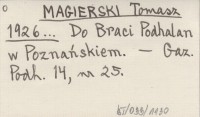 MAGIERSKI Tomasz
1926... Do Braci Podhalan
w Poznańskiem. – Gaz.
Podh. 14, nr 25.